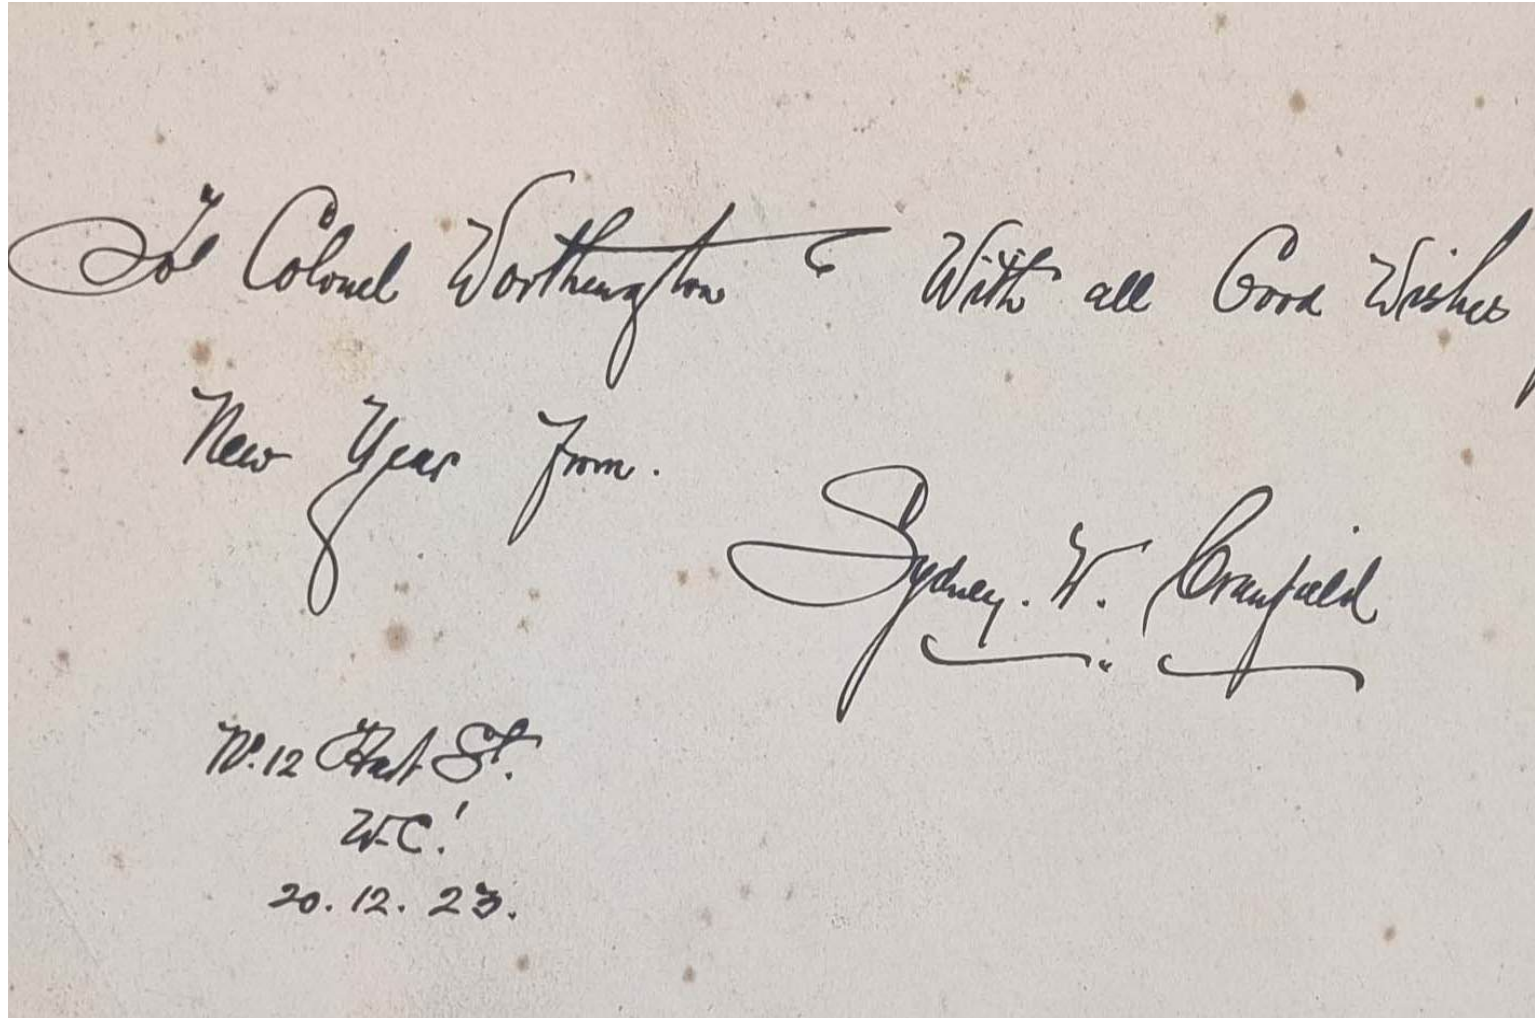 To Colonel Worthington With all Good Wishes
New Year from.
Sydney. W. Cranfield
No. 12 Hart St.
W.C.1
20. 12. 23.